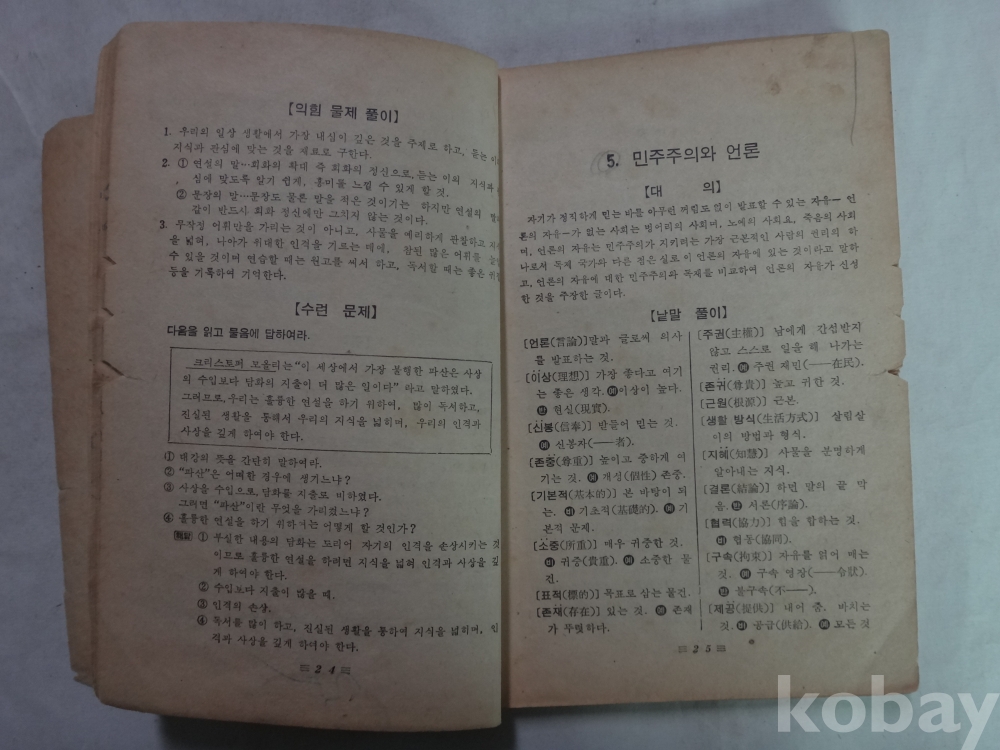 【익힘 물제 풀이】
1. 우리의 일상 생활에서 가장 내심이 깊은 것을 주제로 하고, 듣는 이의
지식과 관심에 맞는 것을 재료로 구한다.
2. ① 연설의 말…회화의 확대 즉 회화의 정신으로, 듣는 이의 지식과
심에 맞도록 알기 쉽게, 흥미를 느낄 수 있게 할 것.
② 문장의 말…문장도 물론 말을 적은 것이기는 하지만 연설의
같이 반드시 회화 정신에만 그치지 않는 것이다.
3. 무작정 어휘만을 가리는 것이 아니고, 사물을 예리하게 관찰하고
을 넓혀, 나아가 위대한 인격을 기르는 데에, 참된 많은 어휘를
수 있을 것이며 연습할 때는 원고를 써서 하고, 독서할 때는 좋은
등을 기록하여 기억한다.
【수련 문제】
다음을 읽고 물음에 답하여라.
크리스토퍼 모올리는 “이 세상에서 가장 불행한 파산은 사상
의 수입보다 담화의 지출이 더 많은 일이다” 라고 말하였다.
그러므로, 우리는 훌륭한 연설을 하기 위하여, 많이 독서하고,
진실된 생활을 통해서 우리의 지식을 넓히며, 우리의 인격과
사상을 깊게 하여야 한다.
① 대강의 뜻을 간단히 말하여라.
② “파산”은 어떠한 경우에 생기느냐?
③ 사상을 수입으로, 담화를 지출로 비하였다.
그러면 “파산”이란 무엇을 가리켰느냐?
④ 훌륭한 연설을 하기 위하여는 어떻게 할 것인가?
해답 ① 부실한 내용의 담화는 도리어 자기의 인격을 손상시키는 것
이므로 훌륭한 연설을 하려면 지식을 넓혀 인격과 사상을 깊
게 하여야 한다.
② 수입보다 지출이 많을 때.
③ 인격의 손상.
④ 독서를 많이 하고, 진실된 생활을 통하여 지식을 넓히며, 인
격과 사상을 깊게 하여야 한다.
24
5. 민주주의와 언론
【대 의】
자기가 정직하게 믿는 바를 아무런 꺼림도 없이 발표할 수 있는 자유—언
론의 자유—가 없는 사회는 벙어리의 사회며, 노예의 사회요, 죽음의 사회
며, 언론의 자유는 민주주의가 지키려는 가장 근본적인 사람의 권리의 하
나로서 독재 국가와 다른 점은 실로 이 언론의 자유에 있는 것이라고 말하
고, 언론의 자유에 대한 민주주의와 독재를 비교하여 언론의 자유가 신성
한 것을 주장한 글이다.
【낱말 풀이】
[언론(言論)] 말과 글로써 의사
를 발표하는 것.
[이상(理想)] 가장 좋다고 여기
는 좋은 생각. 예 이상이 높다.
반 현실(現實).
[신봉(信奉)] 받들어 믿는 것.
예 신봉자(——者).
[존중(尊重)] 높이고 중하게 여
기는 것. 예 개성(個性) 존중.
[기본적(基本的)] 본 바탕이 되
는. 비 기초적(基礎的). 예 기
본적 문제.
[소중(所重)] 매우 귀중한 것.
비 귀중(貴重). 예 소중한 물
건.
[표적(標的)] 목표로 삼는 물건.
[존재(存在)] 있는 것. 예 존재
가 뚜렷하다.
[주권(主權)] 남에게 간섭받지
않고 스스로 일을 해 나가는
권리. 예 주권 재민(——在民).
[존귀(尊貴)] 높고 귀한 것.
[근원(根源)] 근본.
[생활 방식(生活方式)] 살림살
이의 방법과 형식.
[지혜(知慧)] 사물을 분명하게
알아내는 지식.
[결론(結論)] 하던 말의 끝 막
음. 반 서론(序論).
[협력(協力)] 힘을 합하는 것.
비 협동(協同).
[구속(拘束)] 자유를 얽어 매는
것. 예 구속 영장(——令狀).
반 불구속(不——).
[제공(提供)] 내어 줌. 바치는
것. 비 공급(供給). 예 모든 것
25
kobay